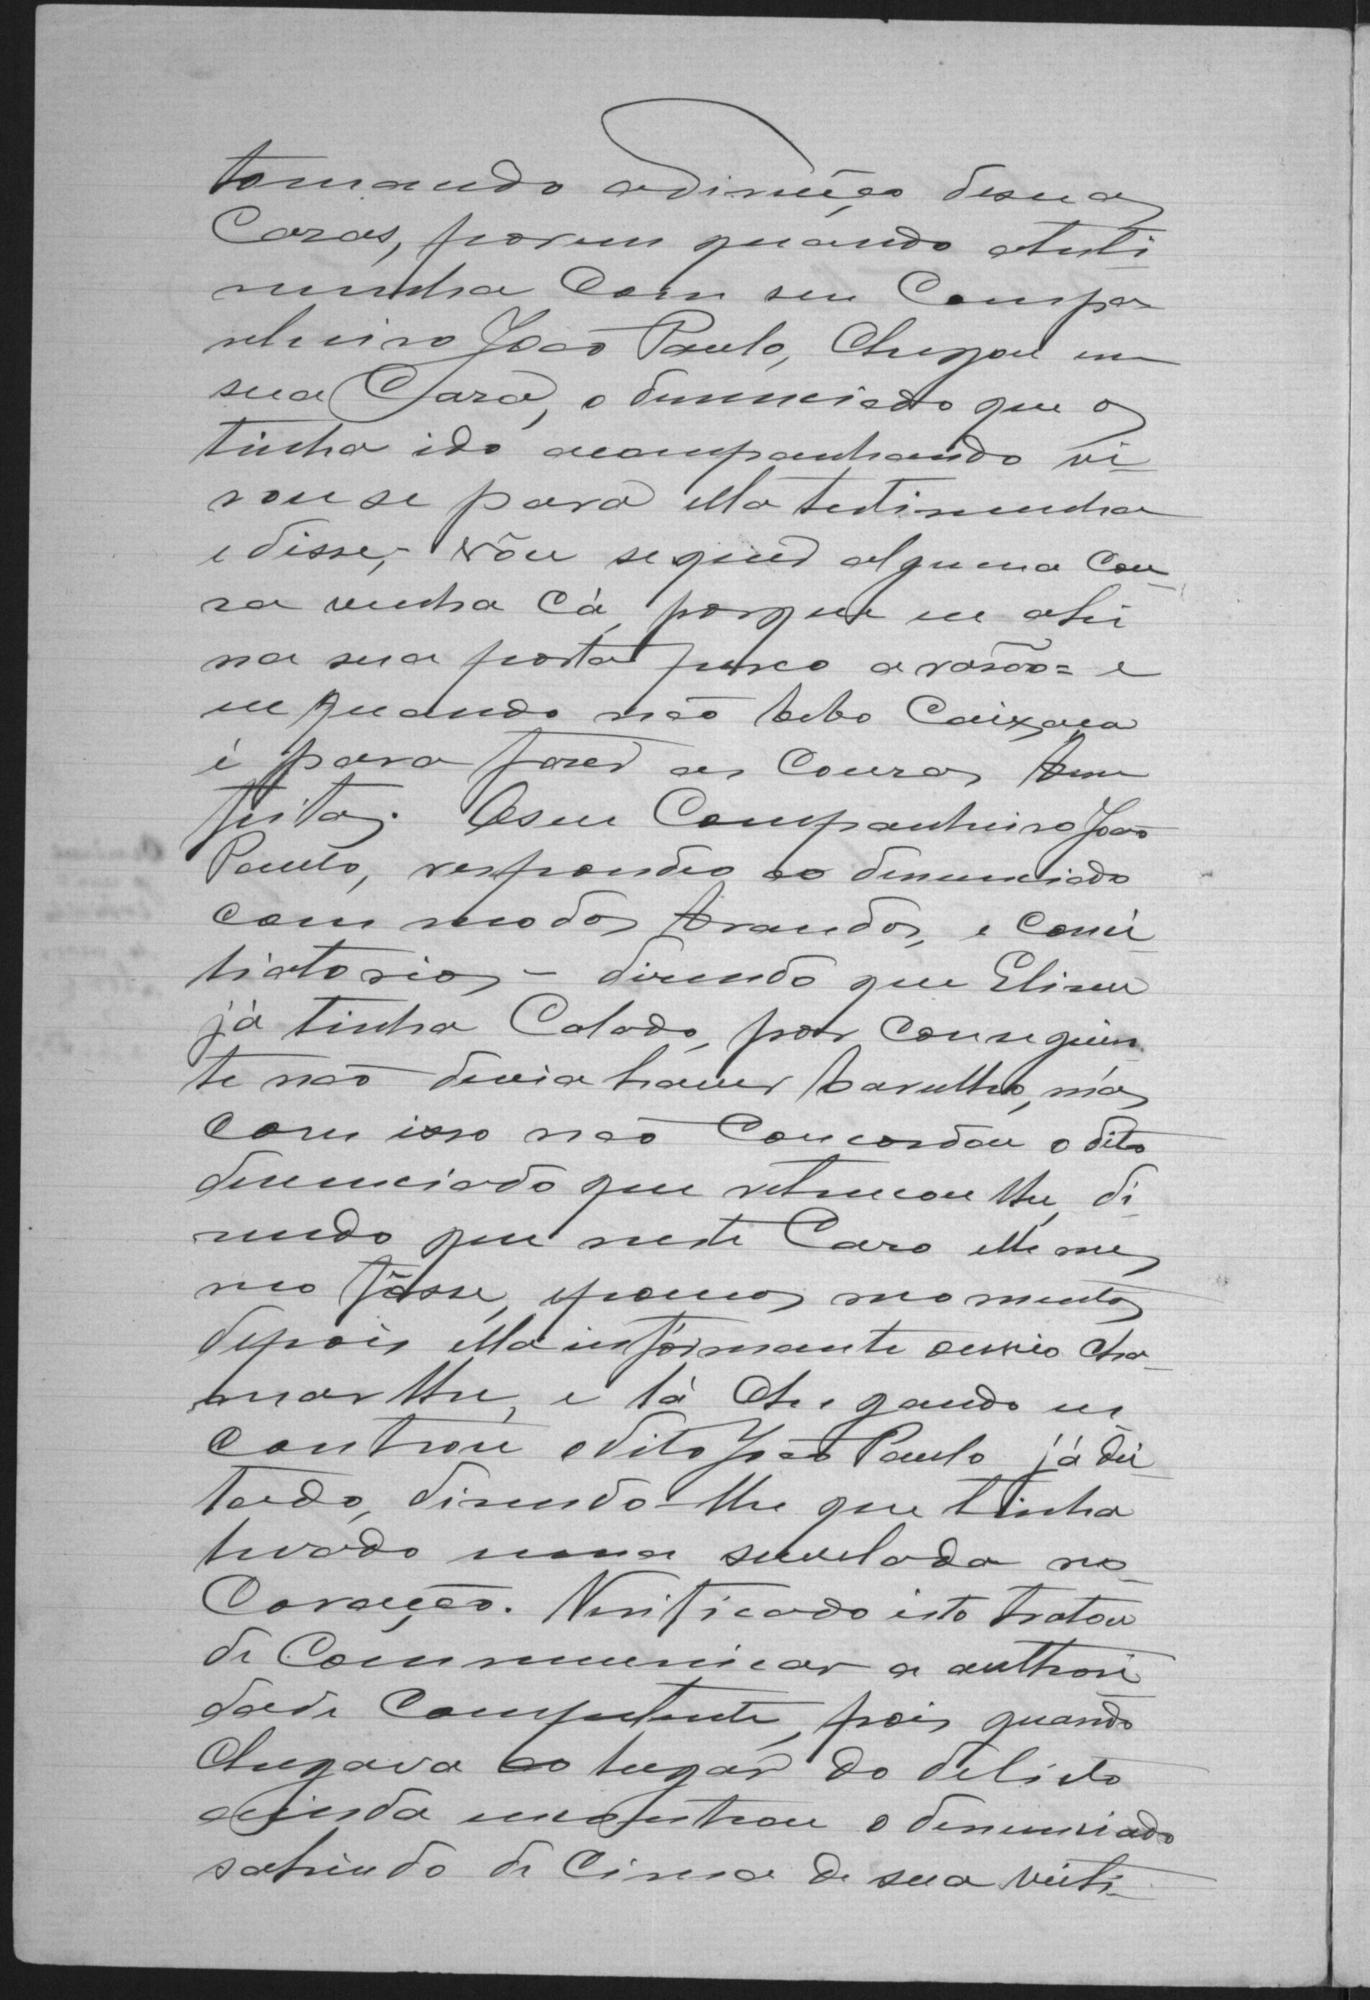 tomando a direução desuas
Cazas, porem quando atesti
munha com seu Compa
nheiro João Paulo, Chegou em
sua Caza, o denunciado que os
tinha ido acompanhando vi
rouse para ella testimunha
e disse, - Vôu se quer alguma cou
za venha cá, porque eu ahi
na sua porta perco a rasão = e
eu quando não bebo Caixaça
é para fazer as Couzas bem
feitas. Oseu Companheiro João
Paulo, respondeo ao denunciado
com modos brandos, e consi
liatorios - dizendo que Eliseu
já tinha Calado, por conseguin
te não devia haver barulho, mas
com isso não Concordou o dito
denunciado que retrucou lhe, di
zendo que neste Cazo elle mes
mo fôsse, epoucos momentos
depois ella informante ouvio cha
mar lhe, e lá chegando en
controu odito João Paulo já dei
tado, dizendo-lhe que tinha
levado uma suvelada no
Coração. Verificado isto tratou
de Communicar a authori
dade Competente, pois quando
Chegava ao lugar do delicto
ainda encontrou o denunciado
sahindo de Cima de sua victi